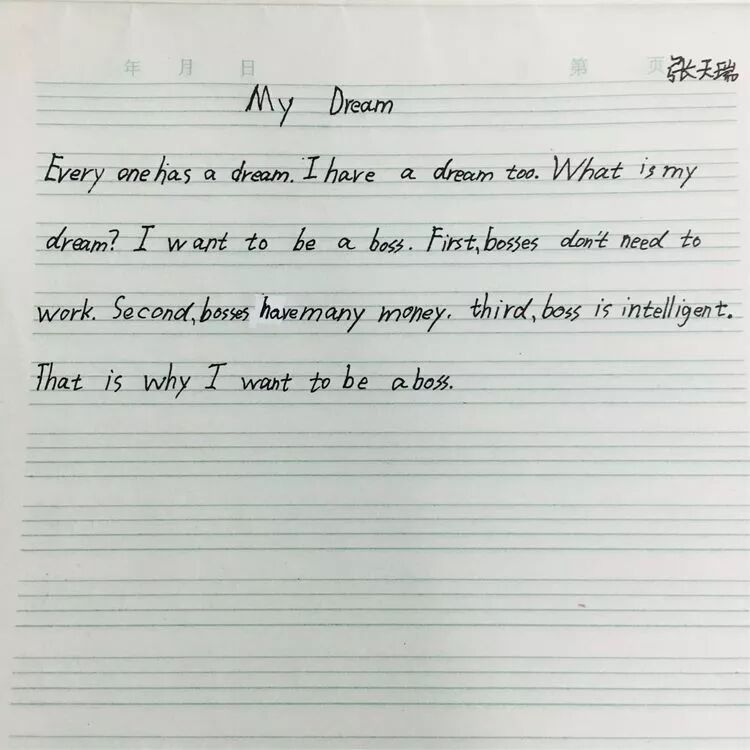 年 月 日 第 页 张天瑞
My Dream
Every one has a dream. I have a dream too. What is my
dream? I want to be a boss. First, bosses don't need to
work. Second, bosses have many money. third, boss is intelligent.
That is why I want to be a boss.